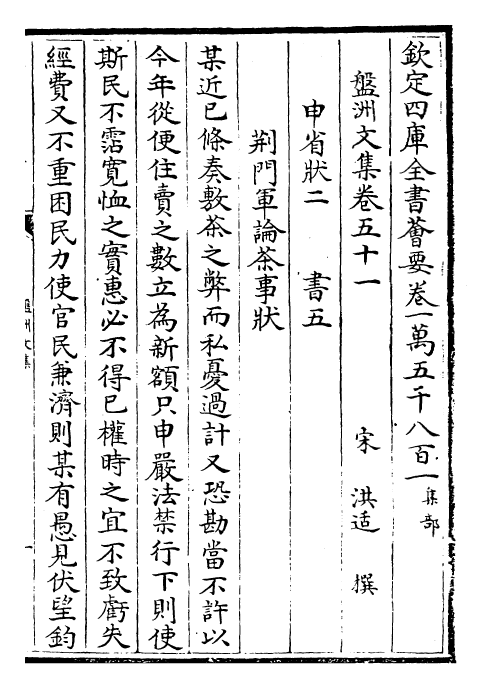 欽定四庫全書薈要卷一萬五千八百一集部
盤洲文集卷五十一
宋 洪适 撰
申省狀二 書五
荆門軍論茶事狀
某近已條奏敷茶之弊而私憂過計又恐勘當不許以
今年從便住賣之數立為新額只申嚴法禁行下則使
斯民不霑寛恤之實惠必不得已權時之宜不致虧失
經費又不重困民力使官民兼濟則某有愚見伏望鈞
盤洲文集
一